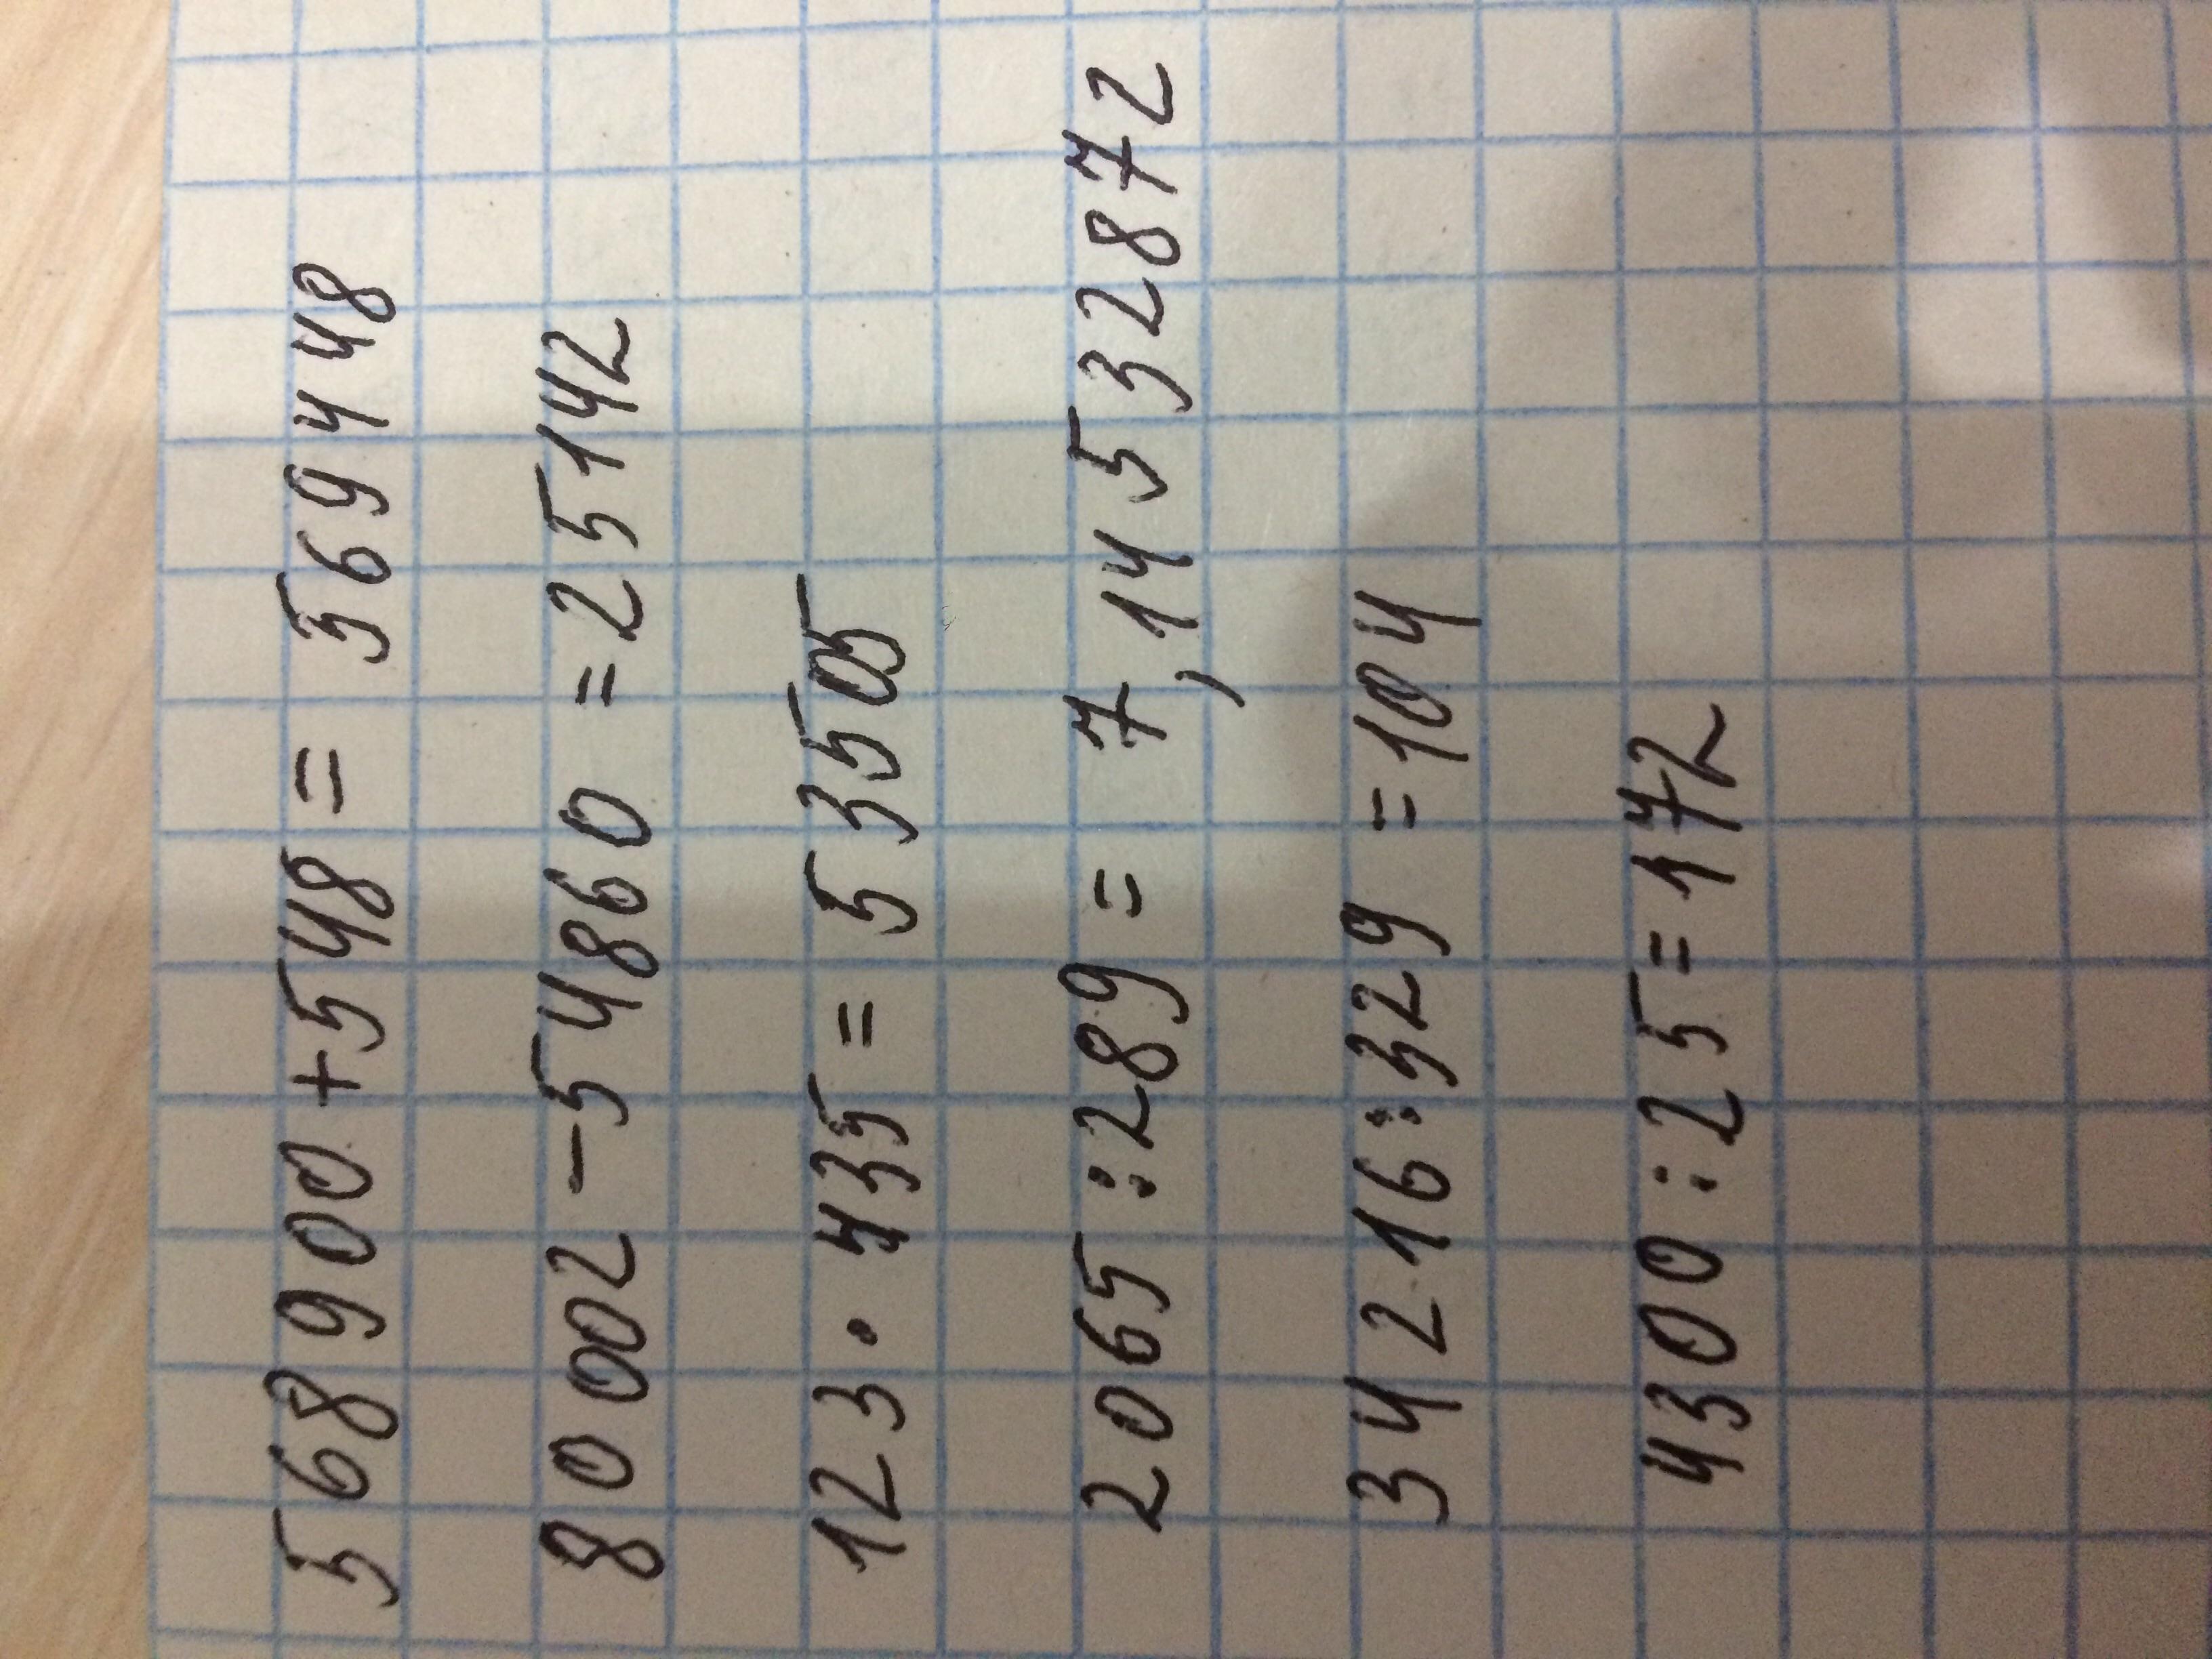 568900+548=569448
80002-54860=25142
123·435=53505
2065:289=7,14532872
34216:329=104
4300:25=172